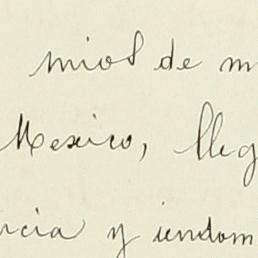 mios de m
Mexico, lleg
ncia y iendom